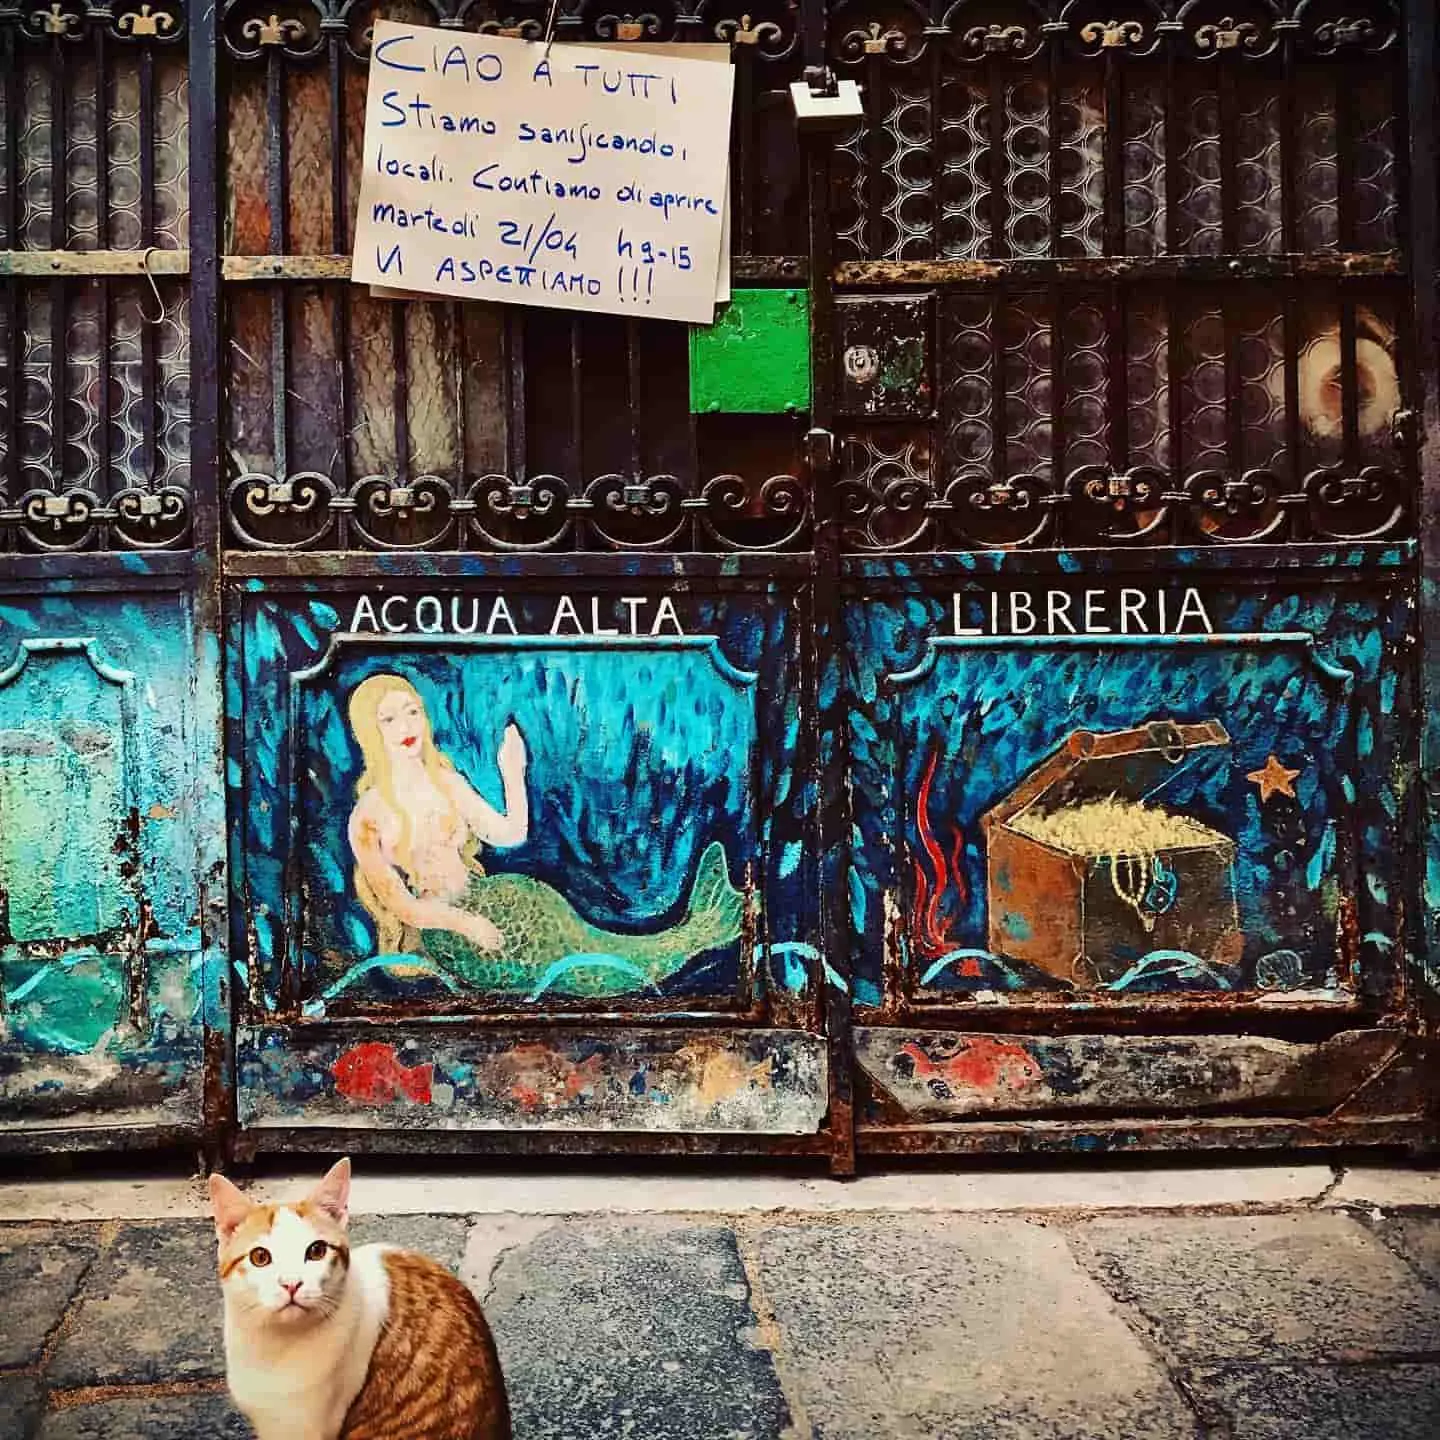 CIAO A TUTTI
Stiamo sanificando i
locali. Contiamo di aprire
martedi 21/04 h 9-15
VI ASPETTIAMO !!!
ACQUA ALTA
LIBRERIA